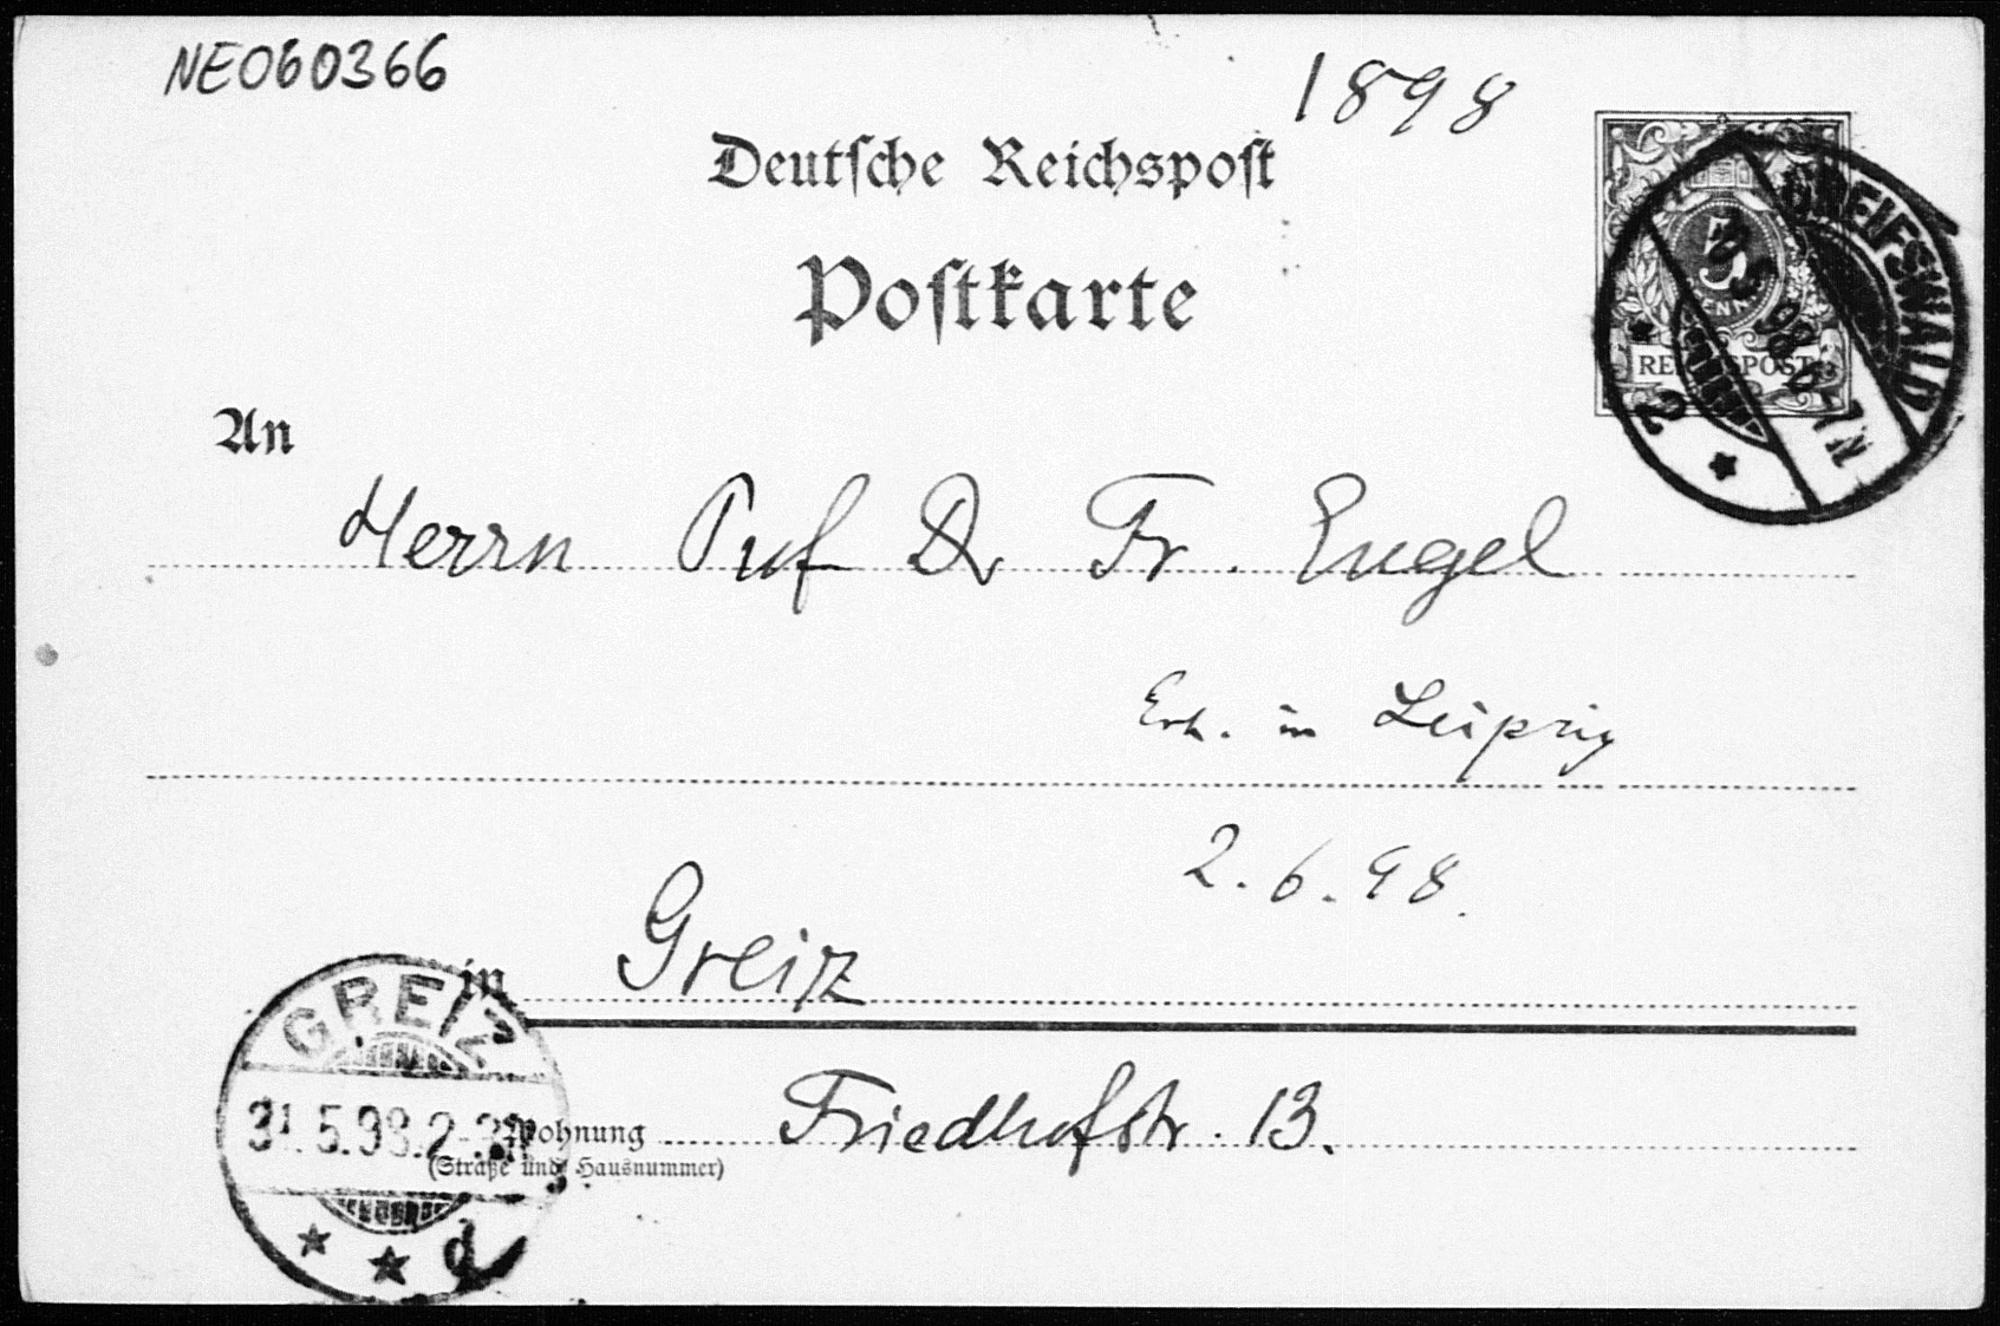 NE060366
1898
Deutsche Reichspost
Postkarte
5
REICHSPOST
GREIFSWALD
98
-7N
2
An
Herrn Prof Dr Fr. Engel
Erh. in Leipzig
2.6.98.
in Greiz
GREIZ
31.5.98.2-3N
d
Wohnung Friedhofstr. 13.
(Straße und Hausnummer)